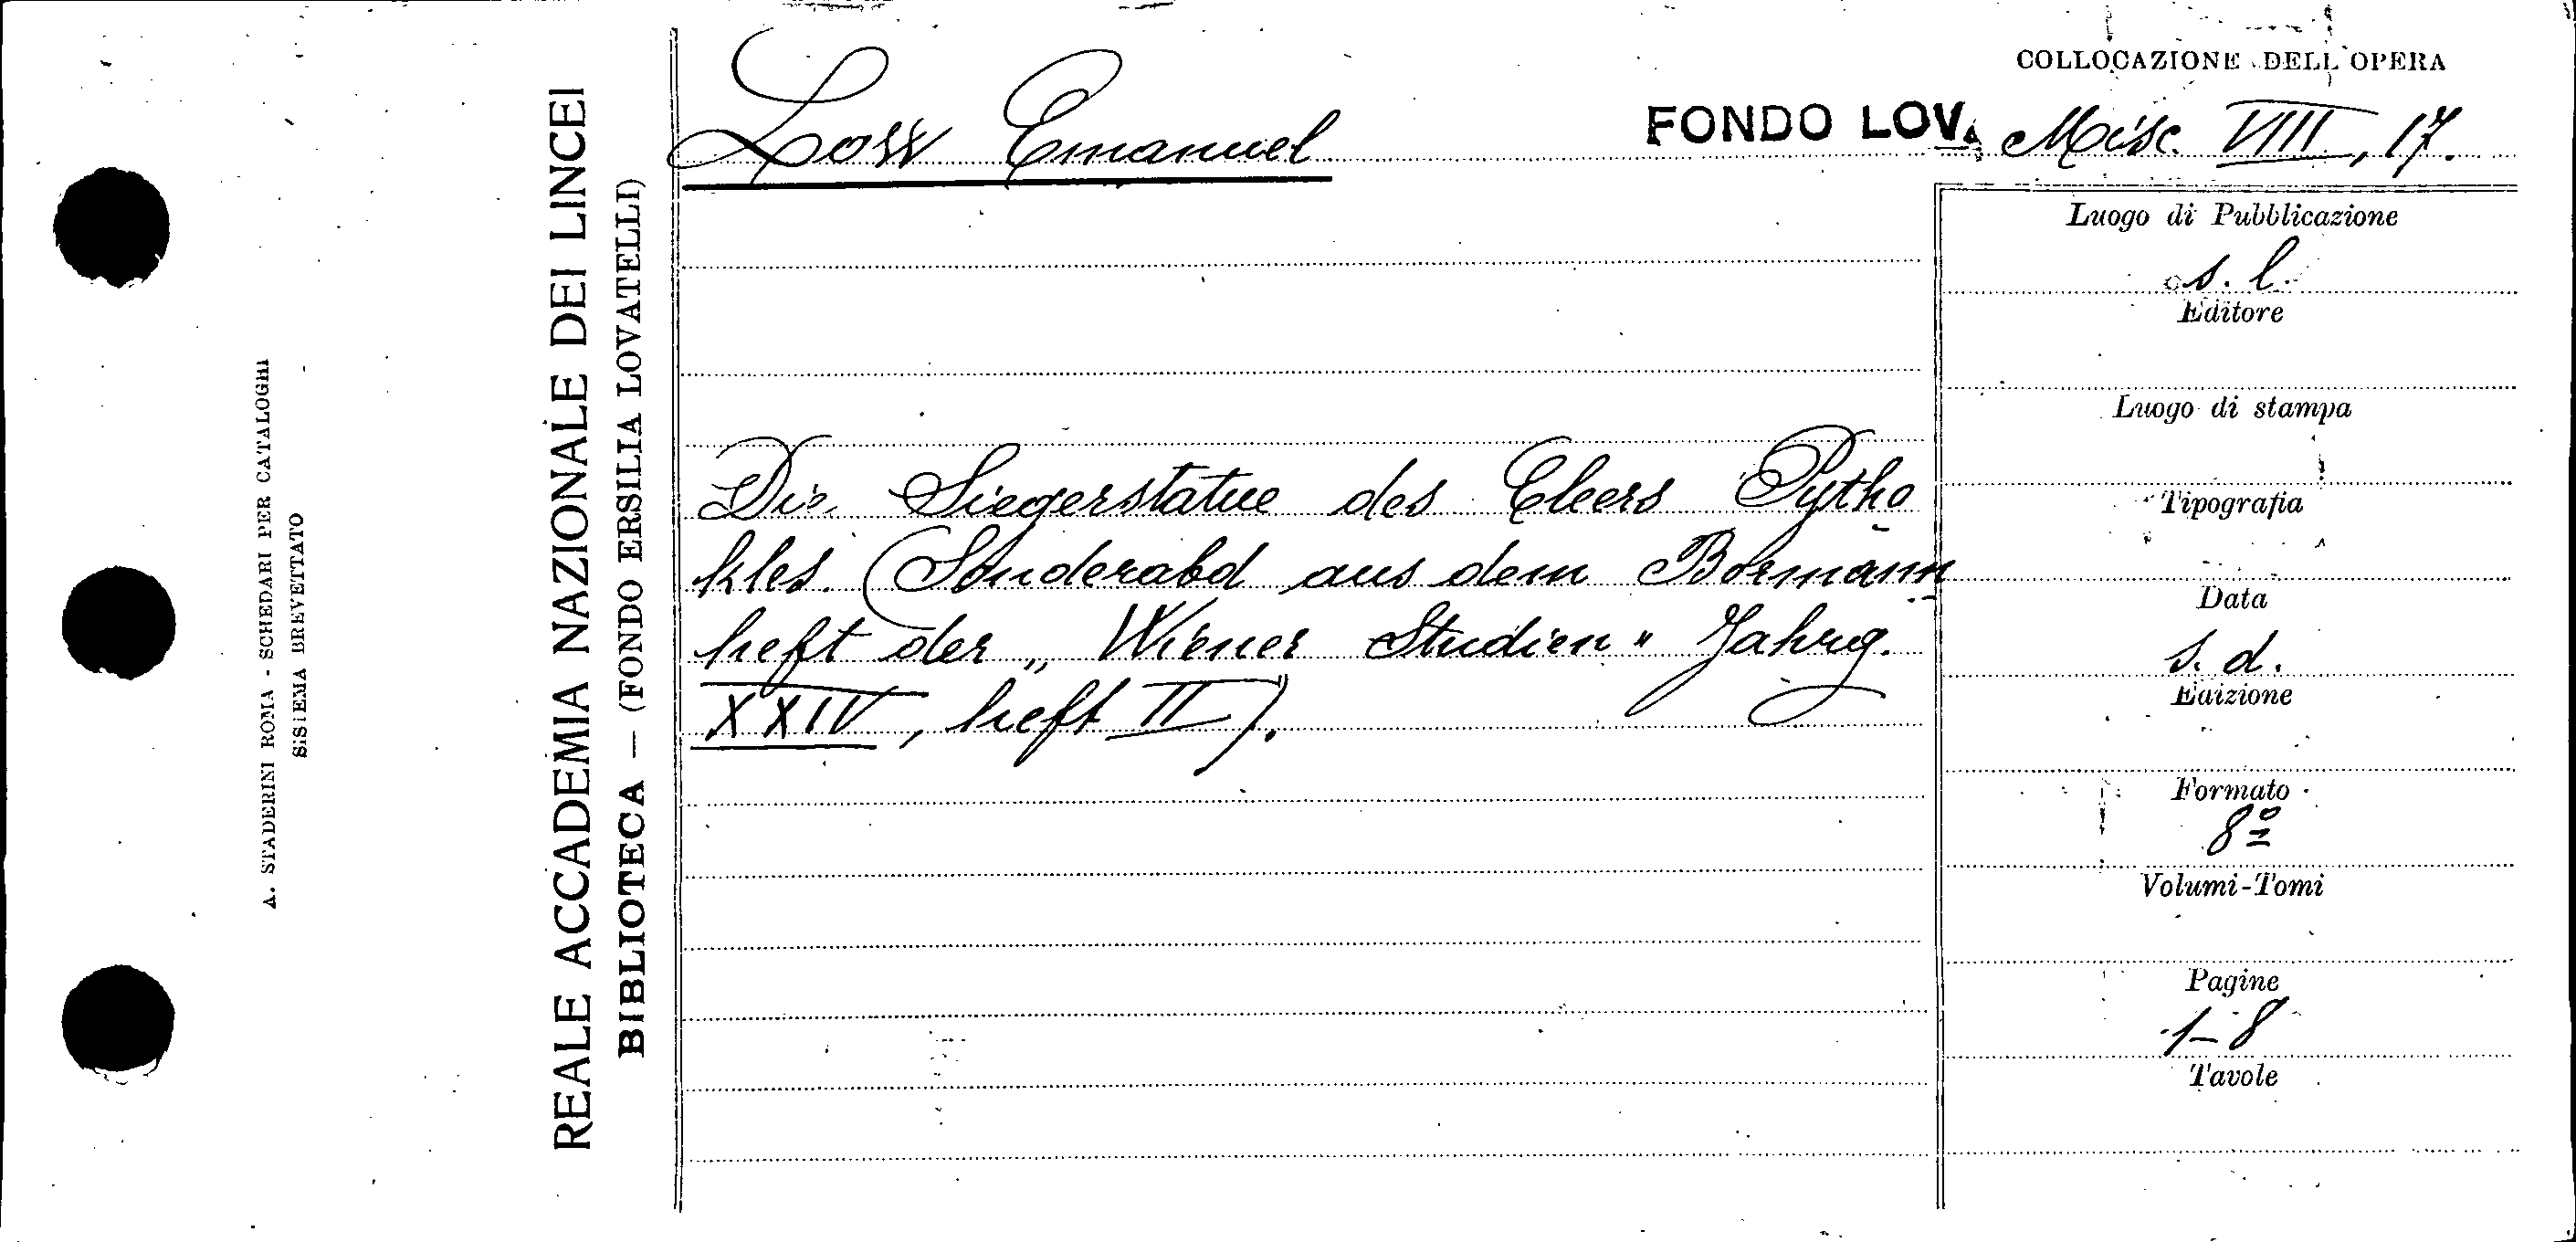 COLLOCAZIONE DELL'OPERA
Loss Emanuel
FONDO LOV. Misc. VIII, 17.
Die Siegerstatue des Eleers Pytho
kles. (Sonderabd aus dem Bormann
heft der „Wiener Studien" Jahrg.
XXIV, heft II).
Luogo di Pubblicazione
s. l.
Editore
Luogo di stampa
Tipografia
Data
s. d.
Edizione
Formato
8º
Volumi-Tomi
Pagine
1-8
Tavole
REALE ACCADEMIA NAZIONALE DEI LINCEI
BIBLIOTECA — (FONDO ERSILIA LOVATELLI)
A. STADERINI ROMA - SCHEDARI PER CATALOGHI
SISTEMA BREVETTATO